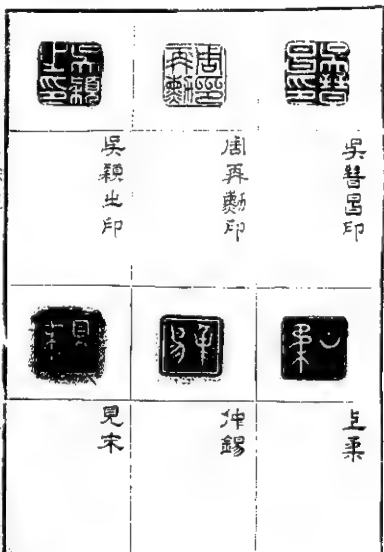 吳晉昌印
周再勳印
吳穎之印
上柔
仲錫
見宋